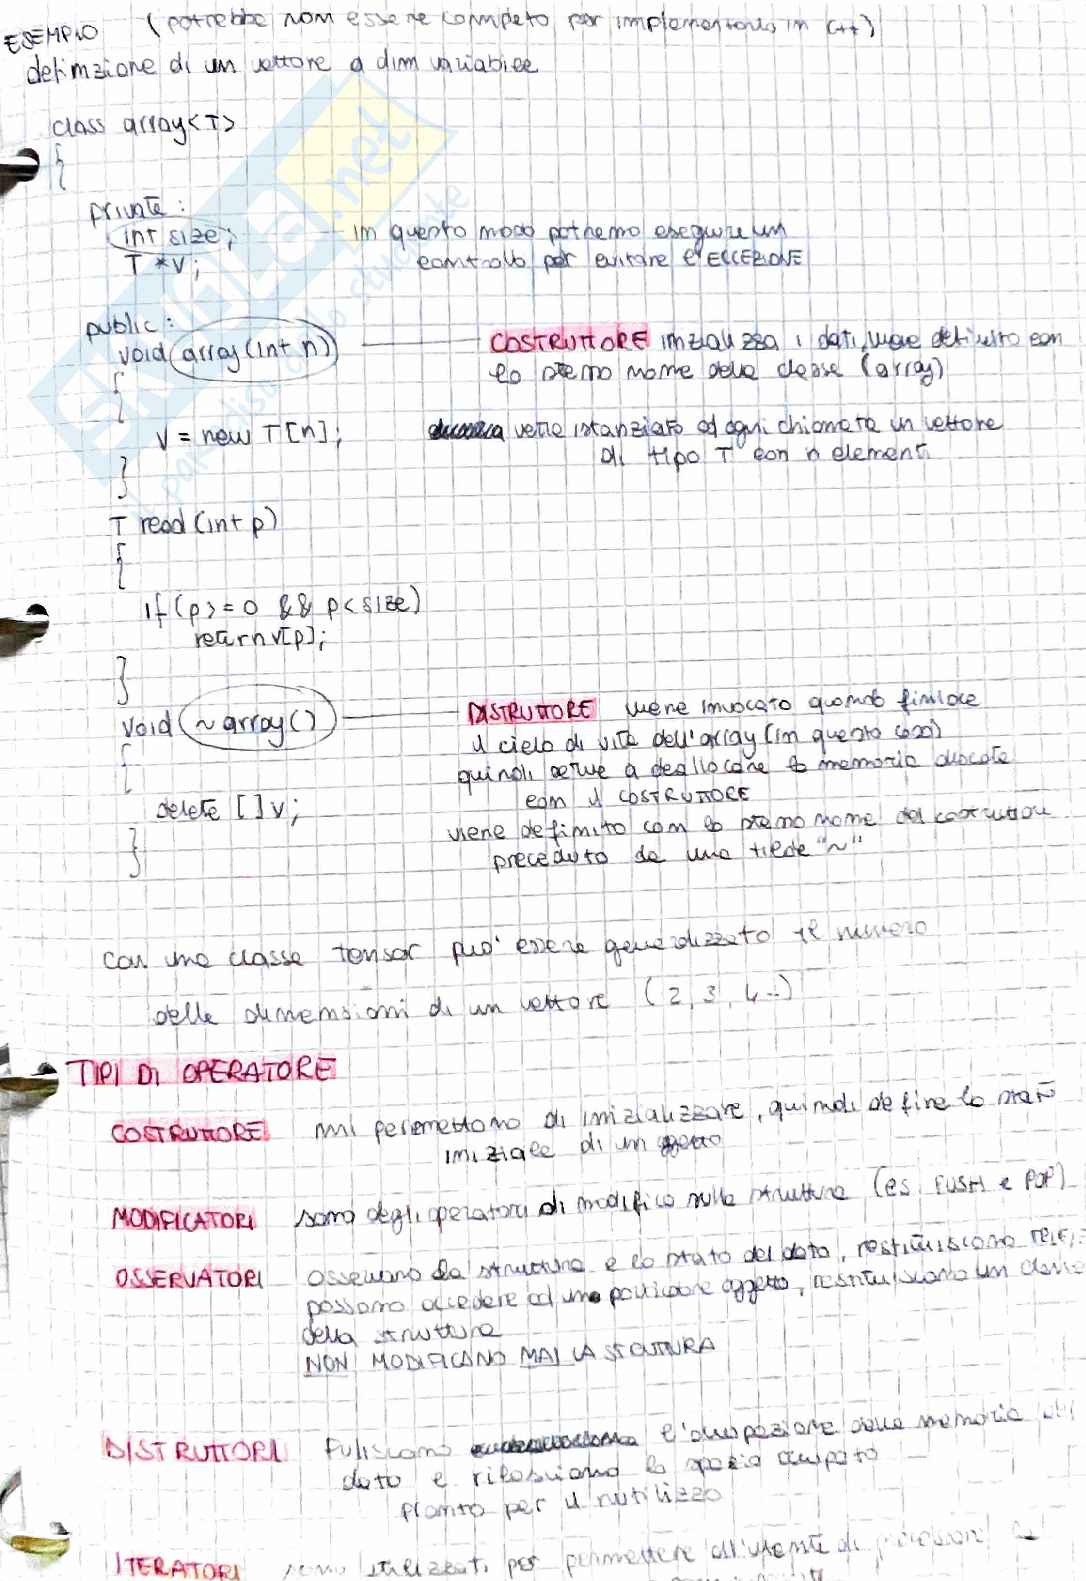 ESEMPIO (potrebbe non essere completo per implementarlo in C++)
definizione di un vettore a dim variabile
class array<T>
{
private:
int size; in questo modo potremo eseguire un
T *v; controllo per evitare l'ECCEZIONE
public:
void array(int n) COSTRUTTORE inizializza i dati, viene definito con
{ lo stesso nome della classe (array)
v = new T[n]; verrà istanziato ad ogni chiamata un vettore
di tipo T con n elementi
}
T read(int p)
{
if(p>=0 && p<size)
return v[p];
}
void ~array() DISTRUTTORE viene invocato quando finisce
{ il ciclo di vita dell'array (in questo caso)
quindi serve a deallocare la memoria allocata
delete []v; con il COSTRUTTORE
} viene definito con lo stesso nome del costruttore
preceduto da una tilde "~"
con una classe tensor può essere generalizzato il numero
delle dimensioni di un vettore (2, 3, 4...)
TIPI DI OPERATORE
COSTRUTTORE mi permettono di inizializzare, quindi define lo stato
iniziale di un oggetto
MODIFICATORI sono degli operatori di modifica sulla struttura (es. PUSH e POP)
OSSERVATORI osservano la struttura e lo stato del dato, restituiscono
possono accedere ad un particolare oggetto, restituiscono un
della struttura
NON MODIFICANO MAI LA STRUTTURA
DISTRUTTORI Puliscono l'occupazione della memoria
dato e rilasciano lo spazio occupato
pronto per il riutilizzo
ITERATORI sono utilizzati per permettere all'utente di
SKUOLA.net
paradiso dello studente